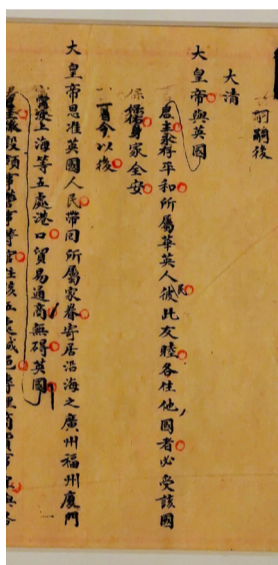 一嗣後
大清
大皇帝與英國
君主永存平和所屬華英人民彼此友睦各住他國者必受該國
保佑身家全安
一自今以後
大皇帝恩准英國人民帶同所屬家眷寄居沿海之廣州福州廈門
寧波上海等五處港口貿易通商無礙英國